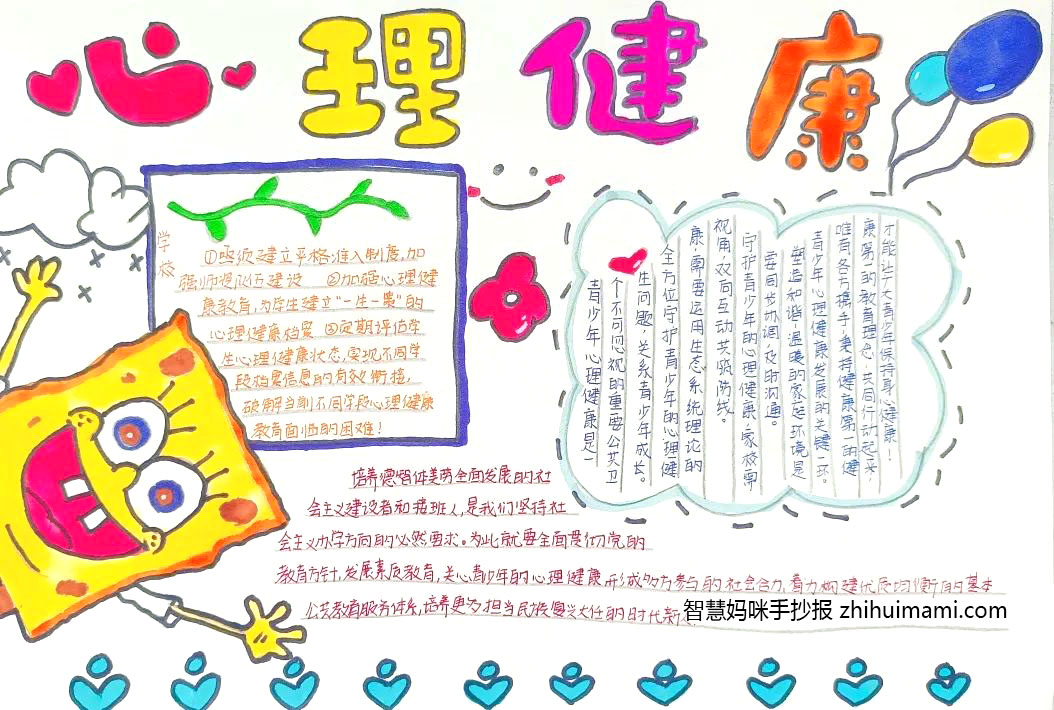 心理健康
学校
①亟须建立严格准入制度,加
强师资队伍建设 ②加强心理健
康教育,为学生建立"一生一册"的
心理健康档案 ③定期评估学
生心理健康状态,实现不同学
段档案信息的有效衔接,
破解当前不同学段心理健康
教育面临的困难!
青少年心理健康是一
个不可忽视的重要公共卫
生问题,关系青少年成长。
全方位守护青少年的心理健
康,需要运用生态系统理论的
视角,双向互动共筑防线。
守护青少年的心理健康,家校需
要同步协调,及时沟通。
塑造和谐、温暖的家庭环境是
青少年心理健康发展的关键一环。
唯有各方携手,秉持健康第一的健
康第一的教育理念,共同行动起来,
才能让广大青少年保持身心健康!
培养德智体美劳全面发展的社
会主义建设者和接班人,是我们坚持社
会主义办学方向的必然要求。为此就要全面贯彻党的
教育方针,发展素质教育,关心青少年的心理健康,形成多方参与的社会合力,着力构建优质均衡的基本
公共教育服务体系,培养更为担当民族复兴大任的时代新
智慧妈咪手抄报 zhihuimami.com